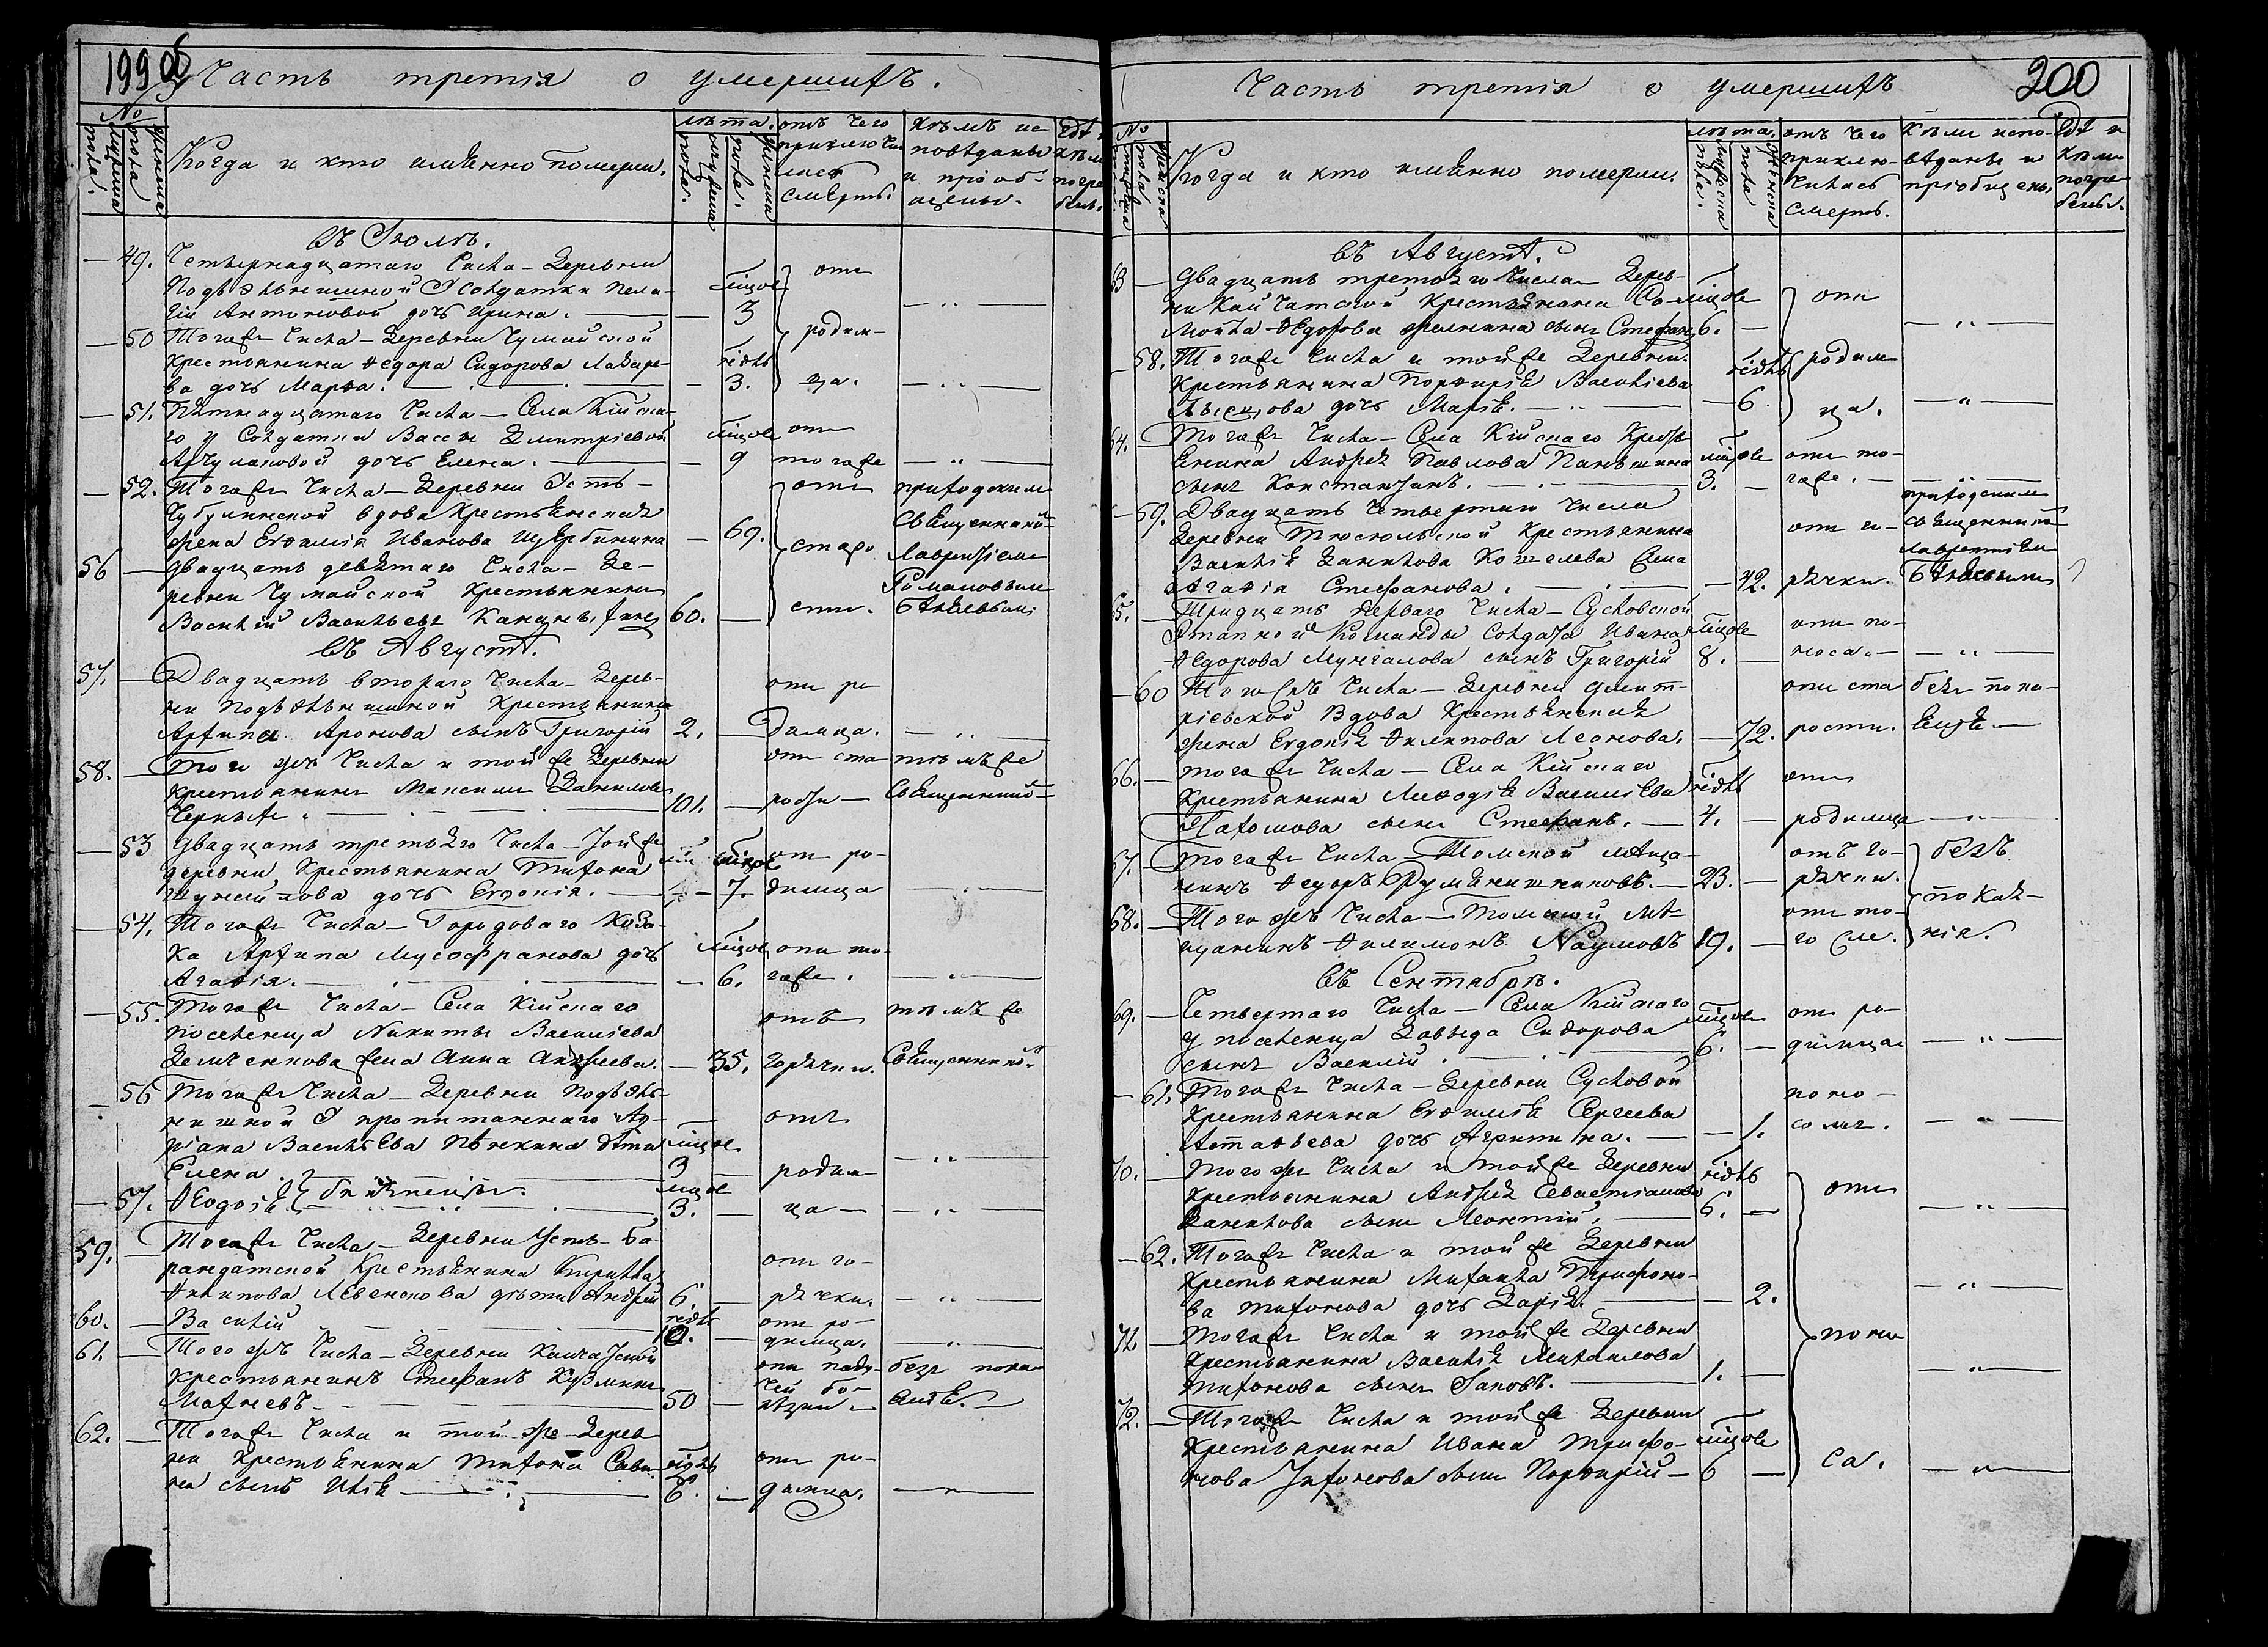 199 об
Часть третія о умершихъ.
№
мужеска пола.
женска пола
Когда и кто имѣнно померли.
лѣта.
мужеска пола.
женска пола.
отъ чего
приключи
лась
смерть.
Кѣмъ ис-
повѣданы
и пріоб-
щены.
Гдѣ и
кѣмъ
погре
бены.
Въ Іюлѣ.
— 49. Четвернадцатаго Числа — Деревни
Солдатки Пела-
гіи Антоновой дочь Ирина. — мцов 3 отъ
— 50 Тогоже Числа — Деревни Чумайской
Крестьянина Ѳедора Сидорова Лазаре-
ва дочь Марѳа. — недѣль 3. родим-
ца.
— 51. Пятнадцатаго Числа — Села Кійска-
го у Солдатки Дмитріевой
дочь Елена. — мцов 9 отъ
тогоже
— 52. Тогоже Числа — Деревни Усть-
Чубулинской вдова Крестьянская
жена Евѳимія Иванова Щербинина — 69. отъ
старо
сти.
приходскимъ
Священнико-
Лаврентіемъ
Романовымъ
Бѣляевымъ
56 — Двадцать девѣтаго Числа — Де-
ревни Чумайской Крестьянинъ
Василій Васильевъ 60. —
Въ Августѣ.
57. — Двадцать втораго Числа — Дерев-
ни Крестьянина
Архипа Аронова сынъ Григорій 2. — отъ ро
димца.
58. — Того жъ Числа и той же Деревни
Крестьянинъ Максимъ Данилов
Черныхъ. — 101. — отъ ста
рости — тѣмъ же
Священникѡ-
— 53 Двадцать третьяго Числа — Той же
деревни Крестьянина Тихона
дочь Евдокія. — мцов 7. отъ ро-
димца
— 54. Тогоже Числа — Городоваго Коза-
ка Архипа Мусофранова дочь
Агаѳія. — мцов 6. отъ то-
гоже.
— 55. Тогоже Числа — Села Кійскаго
поселенца Никиты Василіева
жена Анна Андреева. — 35. отъ
горячки. тѣмъ же
Священнико.
— 56 Тогоже Числа — Деревни
пропитаннаго Ад-
ріана Васильева Пѣнкина дѣти
Елена мцов 3 — отъ
родим
— 57. Ѳеодосія мцов 3. — ца —
59. — Тогоже Числа — Деревни Усть-Ба-
рандатской Крестьянина Кирилла
Филипова дѣти Андрей 6. — отъ го-
рячки.
60. — Василій недѣль 10. — отъ ро-
димца.
61. — Того жъ Числа — Деревни Камчатской
Крестьянинъ Стефанъ Кузминъ
Махневъ — 50 — отъ паду-
чей бо-
лѣзни — безъ пока-
янія. —
62. — Тогоже Числа и той-же Дерев
ни Крестьянина Тихона Сави
на сынъ Илія — недѣль 6. — отъ ро-
димца.
200
Часть третія о умершихъ
№
мужеска пола
женска пола
Когда и кто имѣнно померли.
лѣта.
мужеска пола.
женска пола
отъ чего
приклю-
чилась
смерть.
Кѣмъ испо-
вѣданы и
пріобщены.
Гдѣ и
кѣмъ
погре-
бены.
въ Августѣ.
63 — Двадцать третьяго Числа — Дерев-
ни Камчатской Крестьянина Са-
мойла Ѳедорова сынъ Стефанъ мцов 6. — отъ
— 58. Тогоже Числа и тойже Деревни
Крестьянина Порѳирія Василіева
дочь Марія. — недѣль 6 родим
ца.
64. — Тогоже Числа — Села Кійскаго Кресть
янина Андрея Павлова Паньшина
сынъ Константинъ. — мцов 3. — отъ то-
гоже. —
— 59. Двадцать Четвертаго Числа
Деревни Крестьянина
Василія Данилова Кошелева жена
Агаѳія Стефанова. — 42. отъ го-
рячки. приходскимъ
священнико
Лаврентіемъ
Бѣляевымъ
65. — Тридцать перваго Числа — Сусловской
Этапной Команды Солдата Ивана
Ѳедорова Мунгалова сынъ Григорій мцов 8. — отъ по-
носа. —
— 60 Того жъ Числа — Деревни Дмит-
ріевской Вдова Крестьянская
жена Евдокія Филипова Леонова. — 72. отъ ста
рости. безъ пока-
янія —
66. — Тогоже Числа — Села Кійскаго
Крестьянина Меѳодія Василіева
Пахомова сынъ Стефанъ. — недѣль 4. — отъ
родимца
67. — Тогоже Числа — Томской мѣща-
нинъ Ѳедоръ Румянишниковъ. — 23. — отъ го-
рячки. безъ
68. — Того жъ Числа — Томской мѣ-
щанинъ Филимонъ Наумовъ 19. — отъ то-
го же. покая-
нія.
Въ Сентябрѣ.
69. — Четвертаго Числа — Села Кійскаго
у поселенца Давыда Сидорова
сынъ Василій. — мцов 6. — отъ ро-
димца
— 61. Тогоже Числа — Деревни Сусловой
Крестьянина Евѳимія Сергеева
Астаѳьева дочь Агрипина. — 1. поно-
сомъ.
70. — Того же Числа и той же Деревни
Крестьянина Андрея Севастіанова
Данилова сынъ Леонтій. — недѣль 6. — отъ
— 62. Тогоже Числа и той же Деревни
Крестьянина Михаила Трифоно-
ва Тихонова дочь Дарія. — 2.
71. — Тогоже Числа и той же Деревни
Крестьянина Василія Михаилова
Тихонова сынъ Іаковъ. — 1. — поно
72. — Тогоже Числа и той же Деревни
Крестьянина Ивана Трифо-
нова Тихонова сынъ Порѳирій — мцов 6 — са.